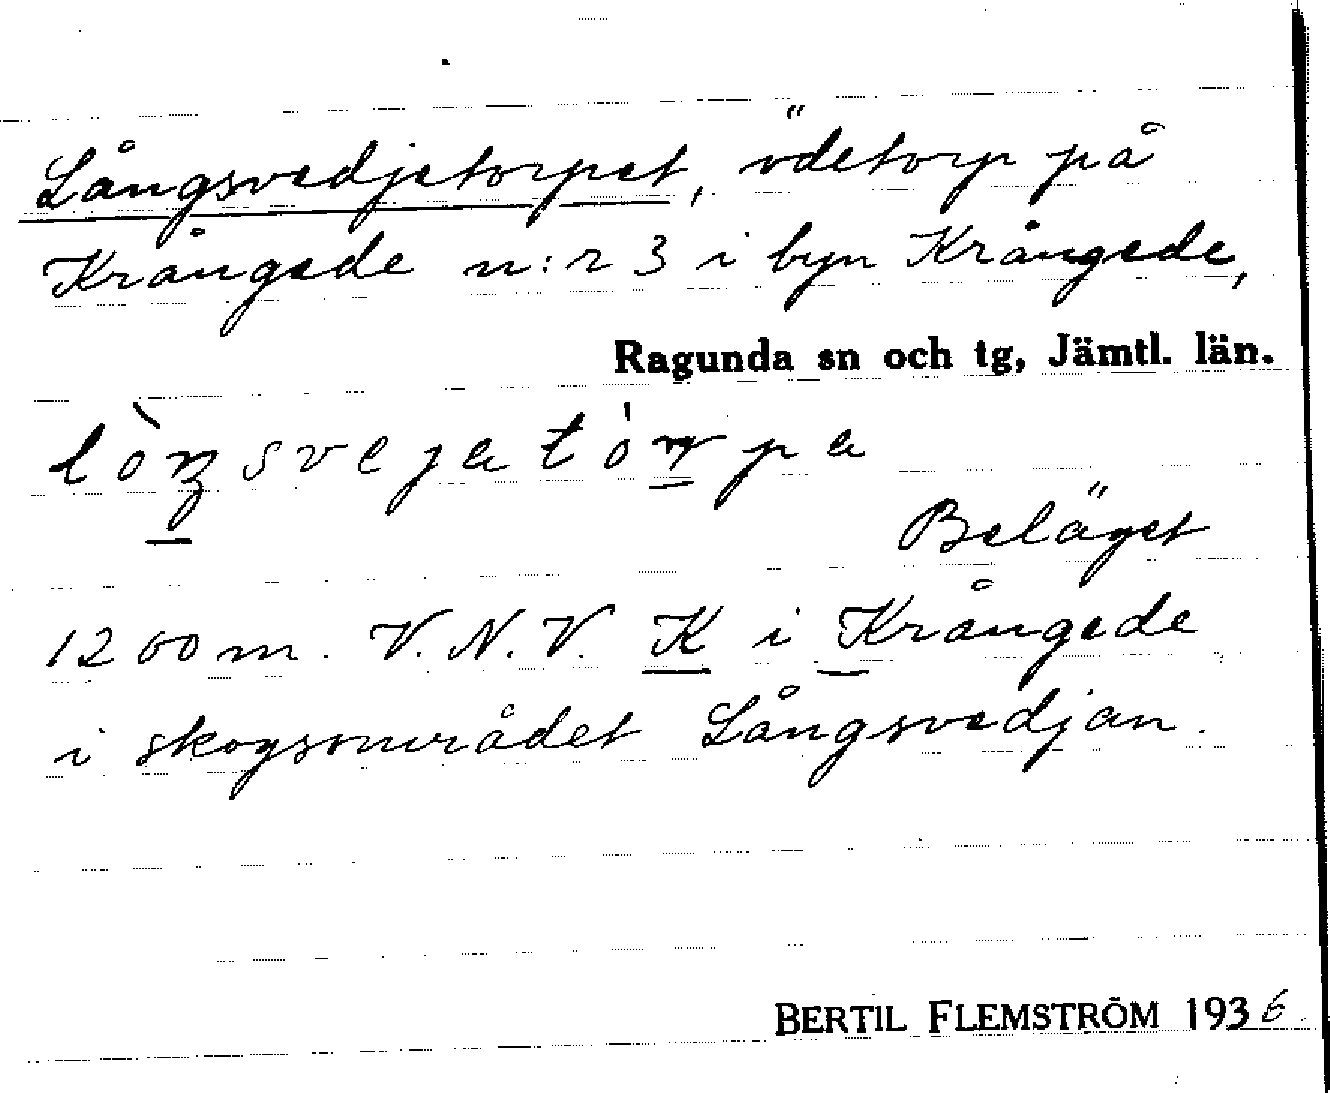 Långsvedjetorpet, ödetorp på
Krångede n:r 3 i byn Krångede,
Ragunda sn och tg, Jämtl. län.
Beläget
1200 m. V.N.V. K i Krångede
i skogsområdet Långsvedjan.
BERTIL FLEMSTRÖM 1936